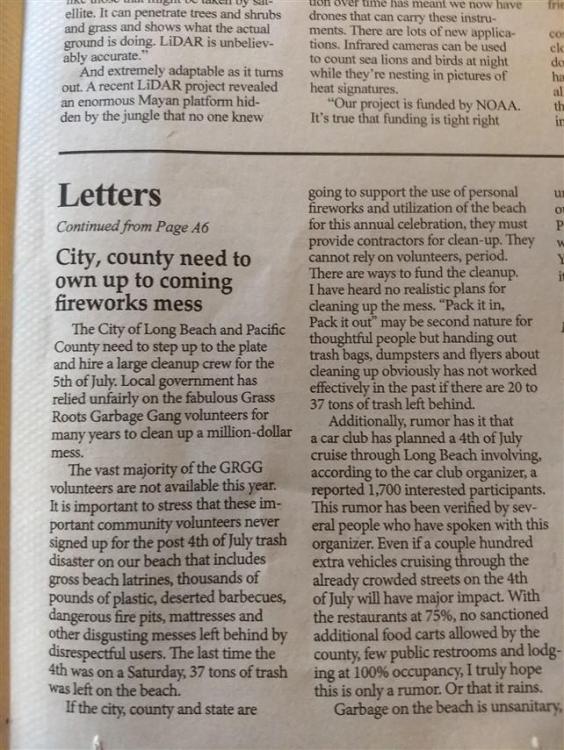 ellite. It can penetrate trees and shrubs
and grass and shows what the actual
ground is doing. LiDAR is unbeliev-
ably accurate.”
And extremely adaptable as it turns
out. A recent LiDAR project revealed
an enormous Mayan platform hid-
den by the jungle that no one knew
tion over time has meant we now have
drones that can carry these instru-
ments. There are lots of new applica-
tions. Infrared cameras can be used
to count sea lions and birds at night
while they’re nesting in pictures of
heat signatures.
“Our project is funded by NOAA.
It’s true that funding is tight right
Letters
Continued from Page A6
City, county need to
own up to coming
fireworks mess
The City of Long Beach and Pacific
County need to step up to the plate
and hire a large cleanup crew for the
5th of July. Local government has
relied unfairly on the fabulous Grass
Roots Garbage Gang volunteers for
many years to clean up a million-dollar
mess.
The vast majority of the GRGG
volunteers are not available this year.
It is important to stress that these im-
portant community volunteers never
signed up for the post 4th of July trash
disaster on our beach that includes
gross beach latrines, thousands of
pounds of plastic, deserted barbecues,
dangerous fire pits, mattresses and
other disgusting messes left behind by
disrespectful users. The last time the
4th was on a Saturday, 37 tons of trash
was left on the beach.
If the city, county and state are
going to support the use of personal
fireworks and utilization of the beach
for this annual celebration, they must
provide contractors for clean-up. They
cannot rely on volunteers, period.
There are ways to fund the cleanup.
I have heard no realistic plans for
cleaning up the mess. “Pack it in,
Pack it out” may be second nature for
thoughtful people but handing out
trash bags, dumpsters and flyers about
cleaning up obviously has not worked
effectively in the past if there are 20 to
37 tons of trash left behind.
Additionally, rumor has it that
a car club has planned a 4th of July
cruise through Long Beach involving,
according to the car club organizer, a
reported 1,700 interested participants.
This rumor has been verified by sev-
eral people who have spoken with this
organizer. Even if a couple hundred
extra vehicles cruising through the
already crowded streets on the 4th
of July will have major impact. With
the restaurants at 75%, no sanctioned
additional food carts allowed by the
county, few public restrooms and lodg-
ing at 100% occupancy, I truly hope
this is only a rumor. Or that it rains.
Garbage on the beach is unsanitary,